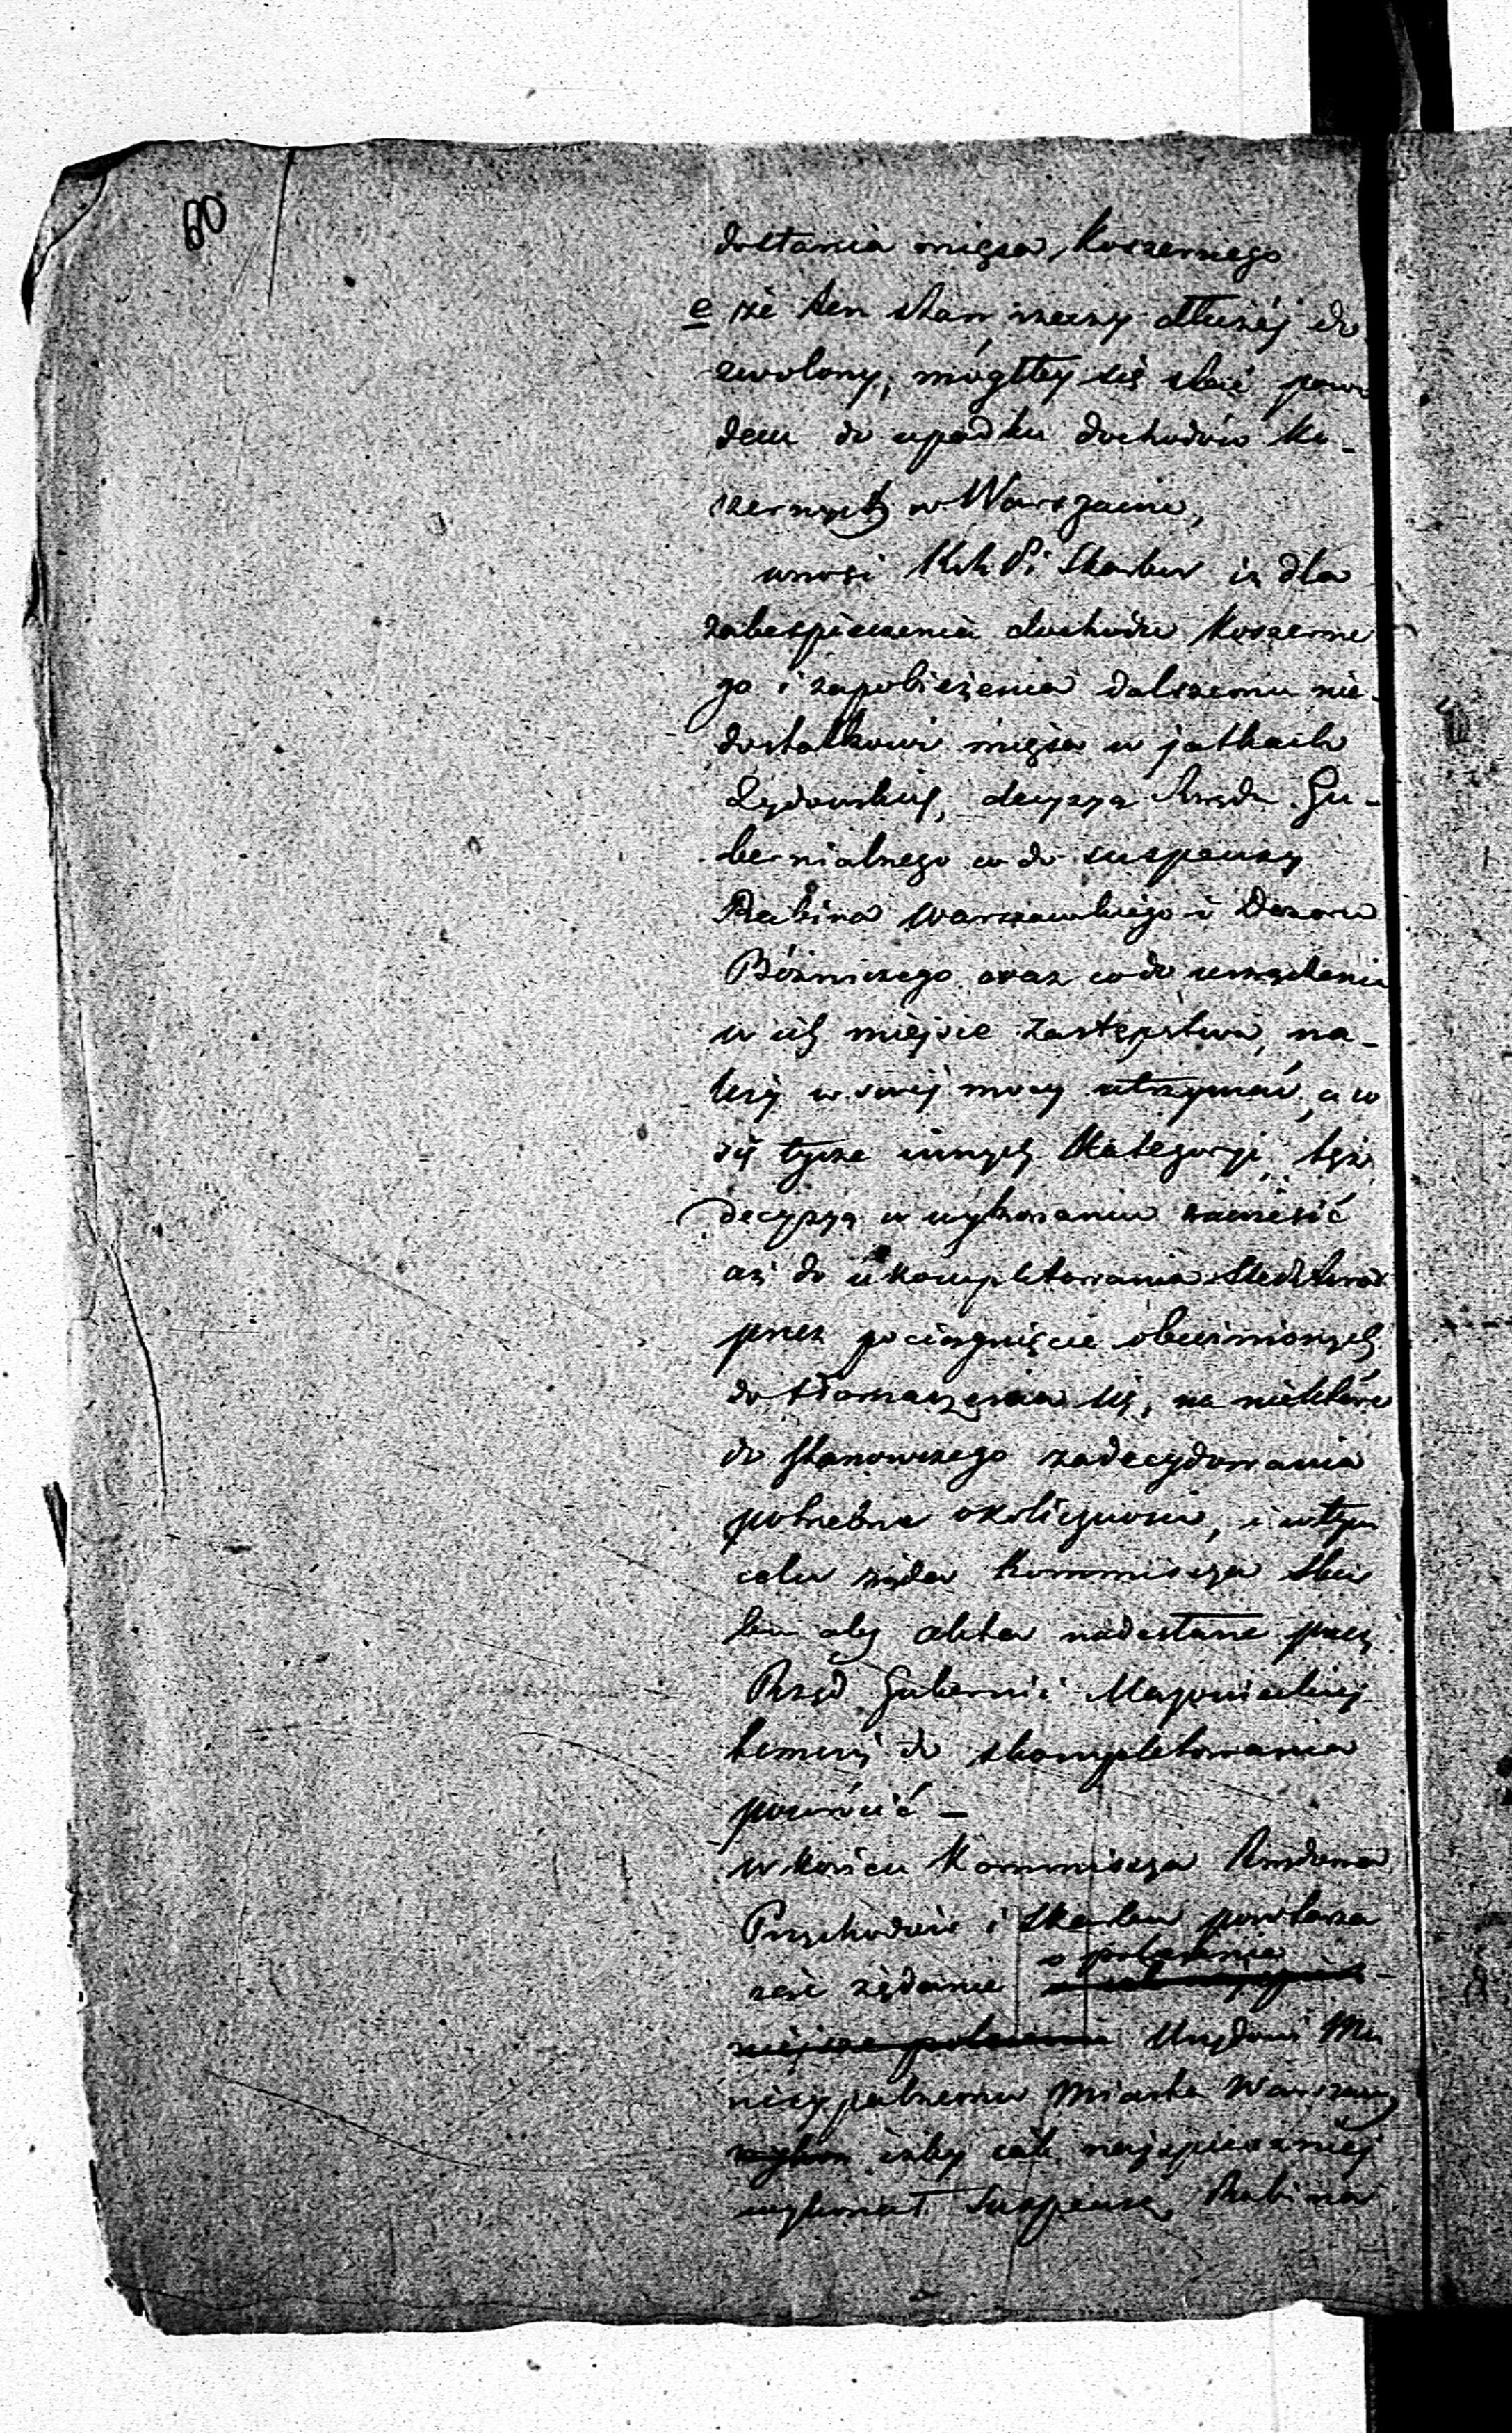 60
dostania mięsa koszernego
e że ten stan rzeczy dłużéj do
zwolony, mógłby się stać powo
dem do upadku dochodów ko-
szernych w Warszawie,
wnosi K. R. P. i Skarbu iż dla
zabespieczenia dochodu koszerne
go i zapobieżenia dalszemu nie-
dostatkowi mięsa w jatkach
Żydowskich, decyzyą Rządu Gu-
bernialnego co do suspensy
Rabina Warszawskiego i Dozoru
Bóżniczego oraz co do urządzenia
w ich miejsce zastępstwa, na-
leży w swéj mocy utrzymać, a co
się tycze innych kategoryi, tęż
decyzyą w wykonaniu zawiesić
aż do ukompletowania śledztwa
przez pociągnięcie obwinionych
do tłomaczenia się, na niektóre
do stanowczego zadecydowania
potrzebne okoliczności, i w tym
celu żąda Kommissya Skar
bu aby akta nadesłane przez
Rząd Gubernii Mazowieckiej
temuż do skompletowania
powrócić —
w końcu Kommissya Rządowa
Przychodów i Skarbu powtarza
żądanie o polecenie
Urzędowi Mu
nicypalnemu Miasta Warszawy
iżby jak najspieszniéj
wykonał suspensę Rabina